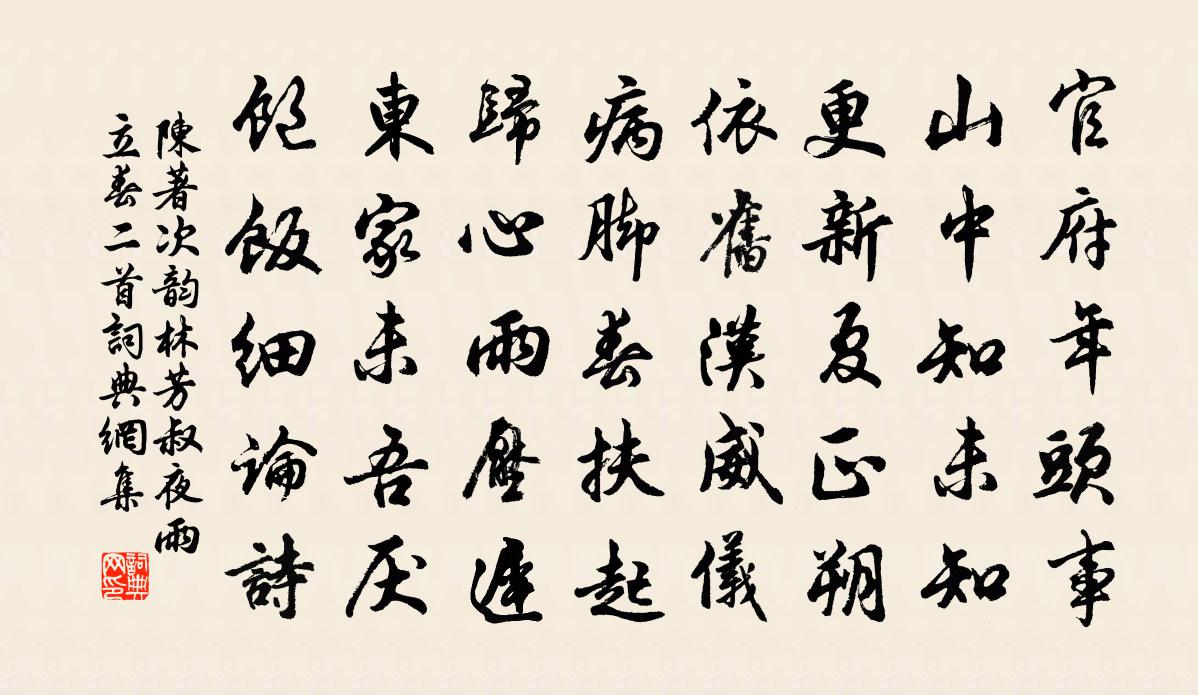 官府年頭事
山中知未知
更新夏正朔
依舊漢威儀
病脚春扶起
歸心雨壓遲
東家未吾厌
飽飯細論詩
陳著次韵林芳叔夜雨
立春二首詞典網集
詞典网印